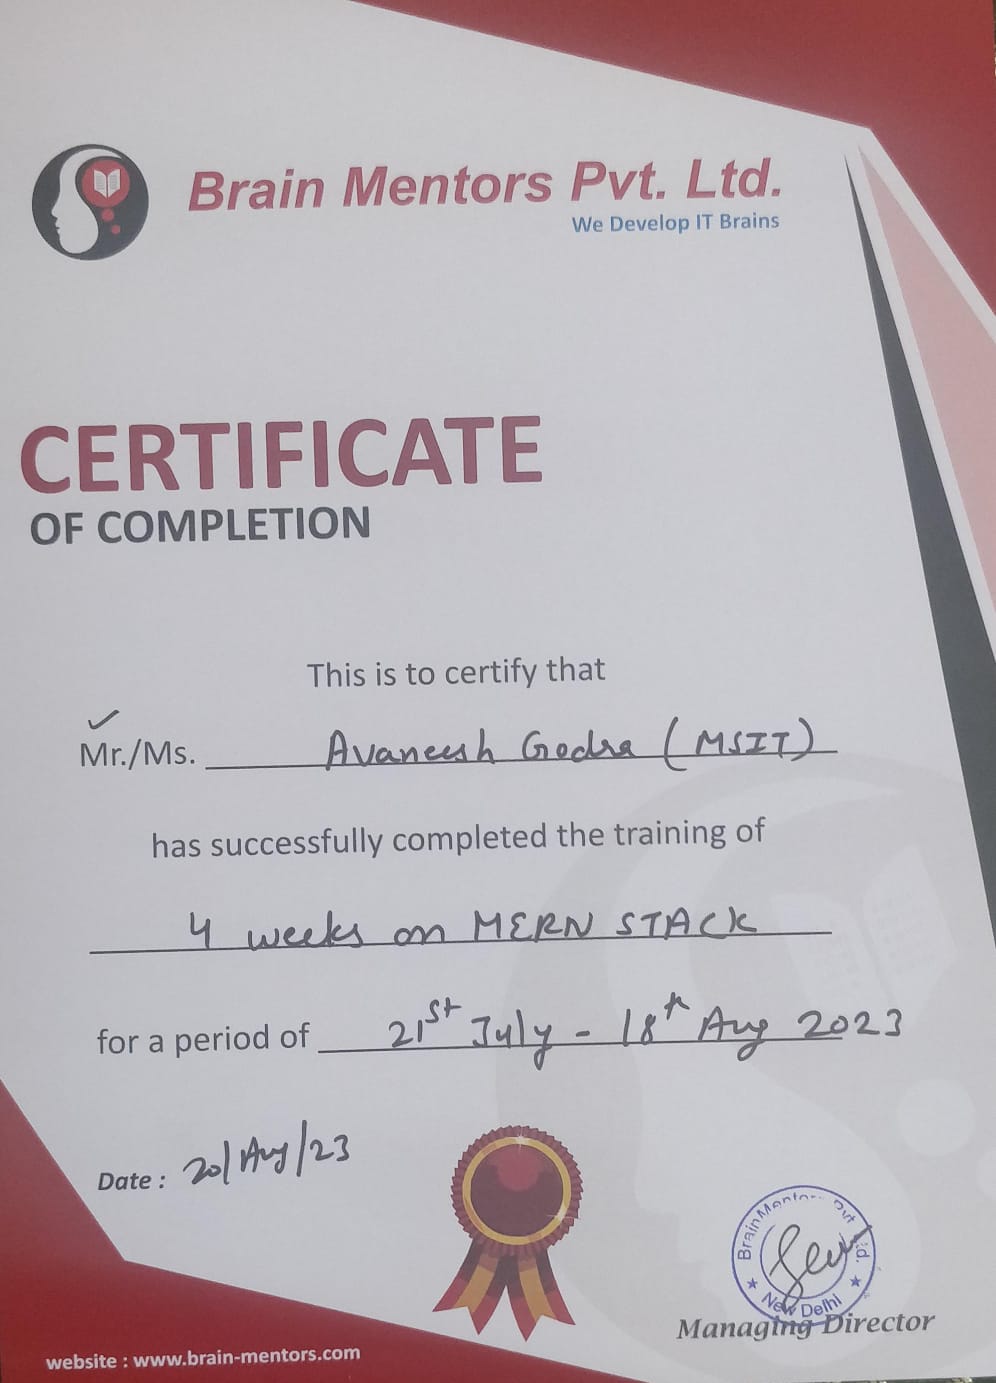 Brain Mentors Pvt. Ltd.
We Develop IT Brains
CERTIFICATE
OF COMPLETION
This is to certify that
Mr./Ms. Avaneesh Godra (MSIT)
has successfully completed the training of
4 weeks on MERN STACK
for a period of 21st July - 18th Aug 2023
Date : 20/Aug/23
Brain Mentors Pvt Ltd.
★ New Delhi ★
Managing Director
website : www.brain-mentors.com